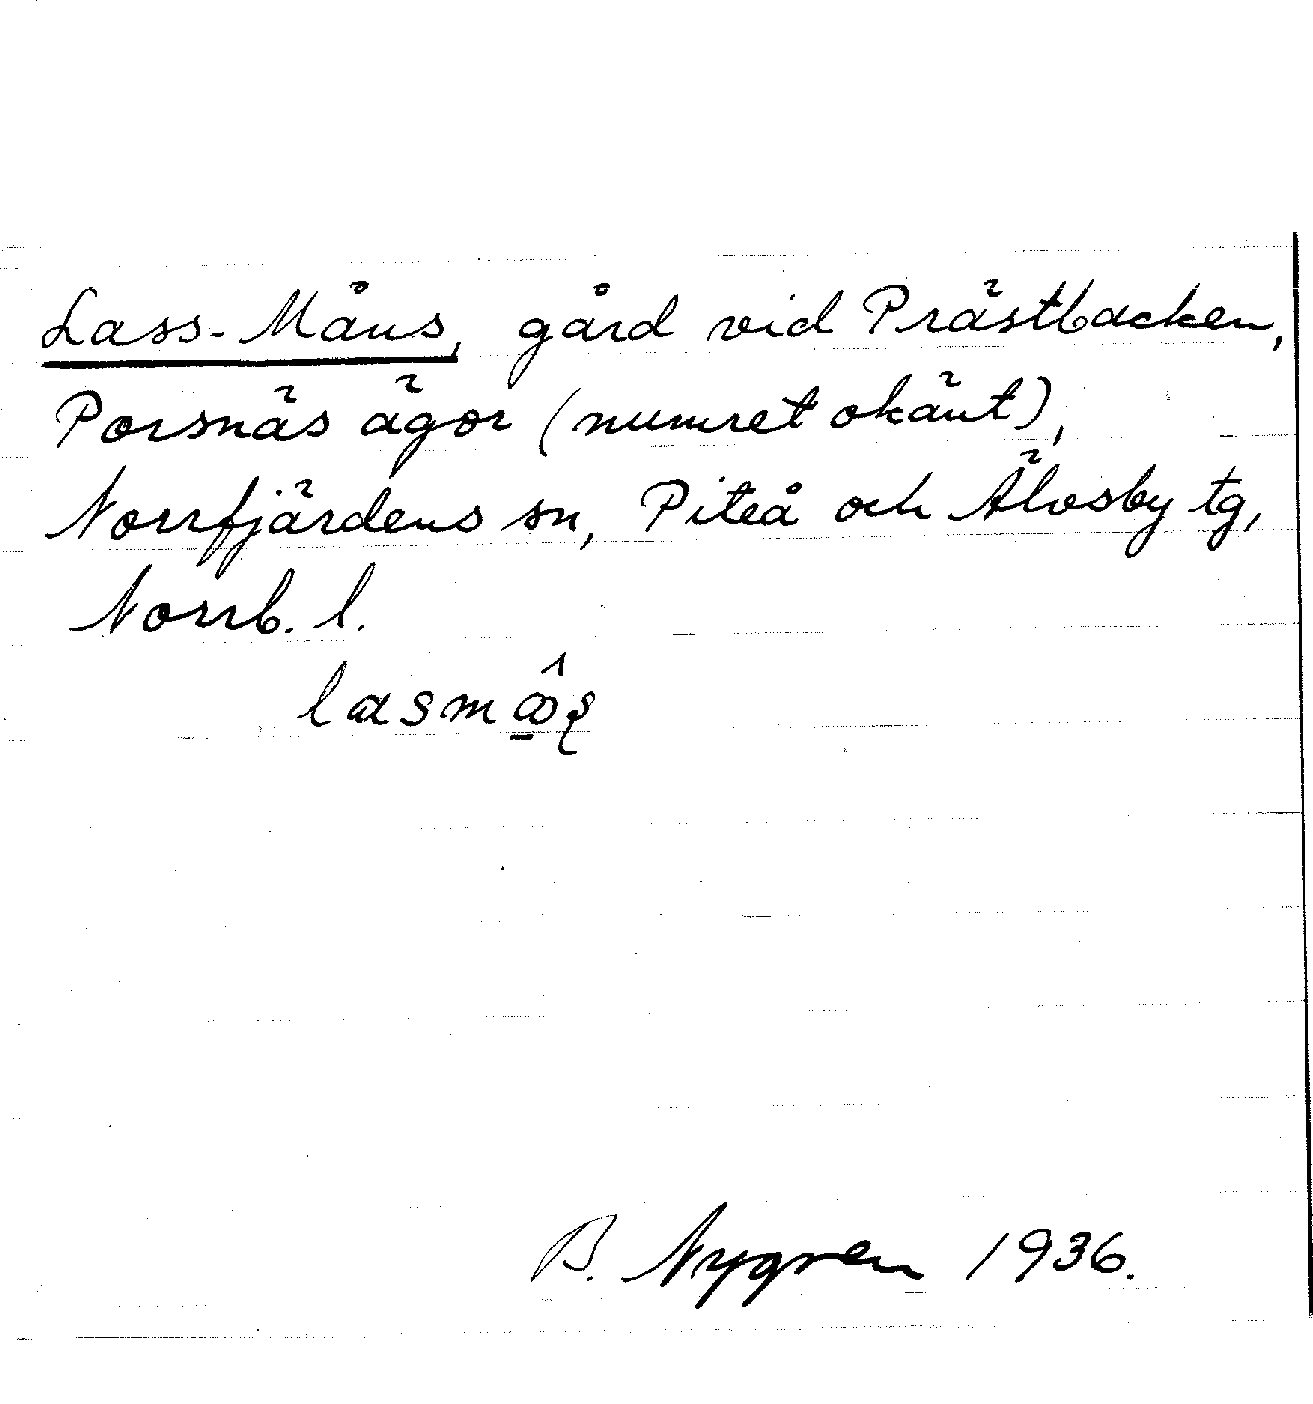 Lass-Måns, gård vid Prästbacken,
Porsnäs ägor (numret okänt),
Norrfjärdens sn, Piteå och Älvsby tg,
Norrb. l.
B. Nygren 1936.